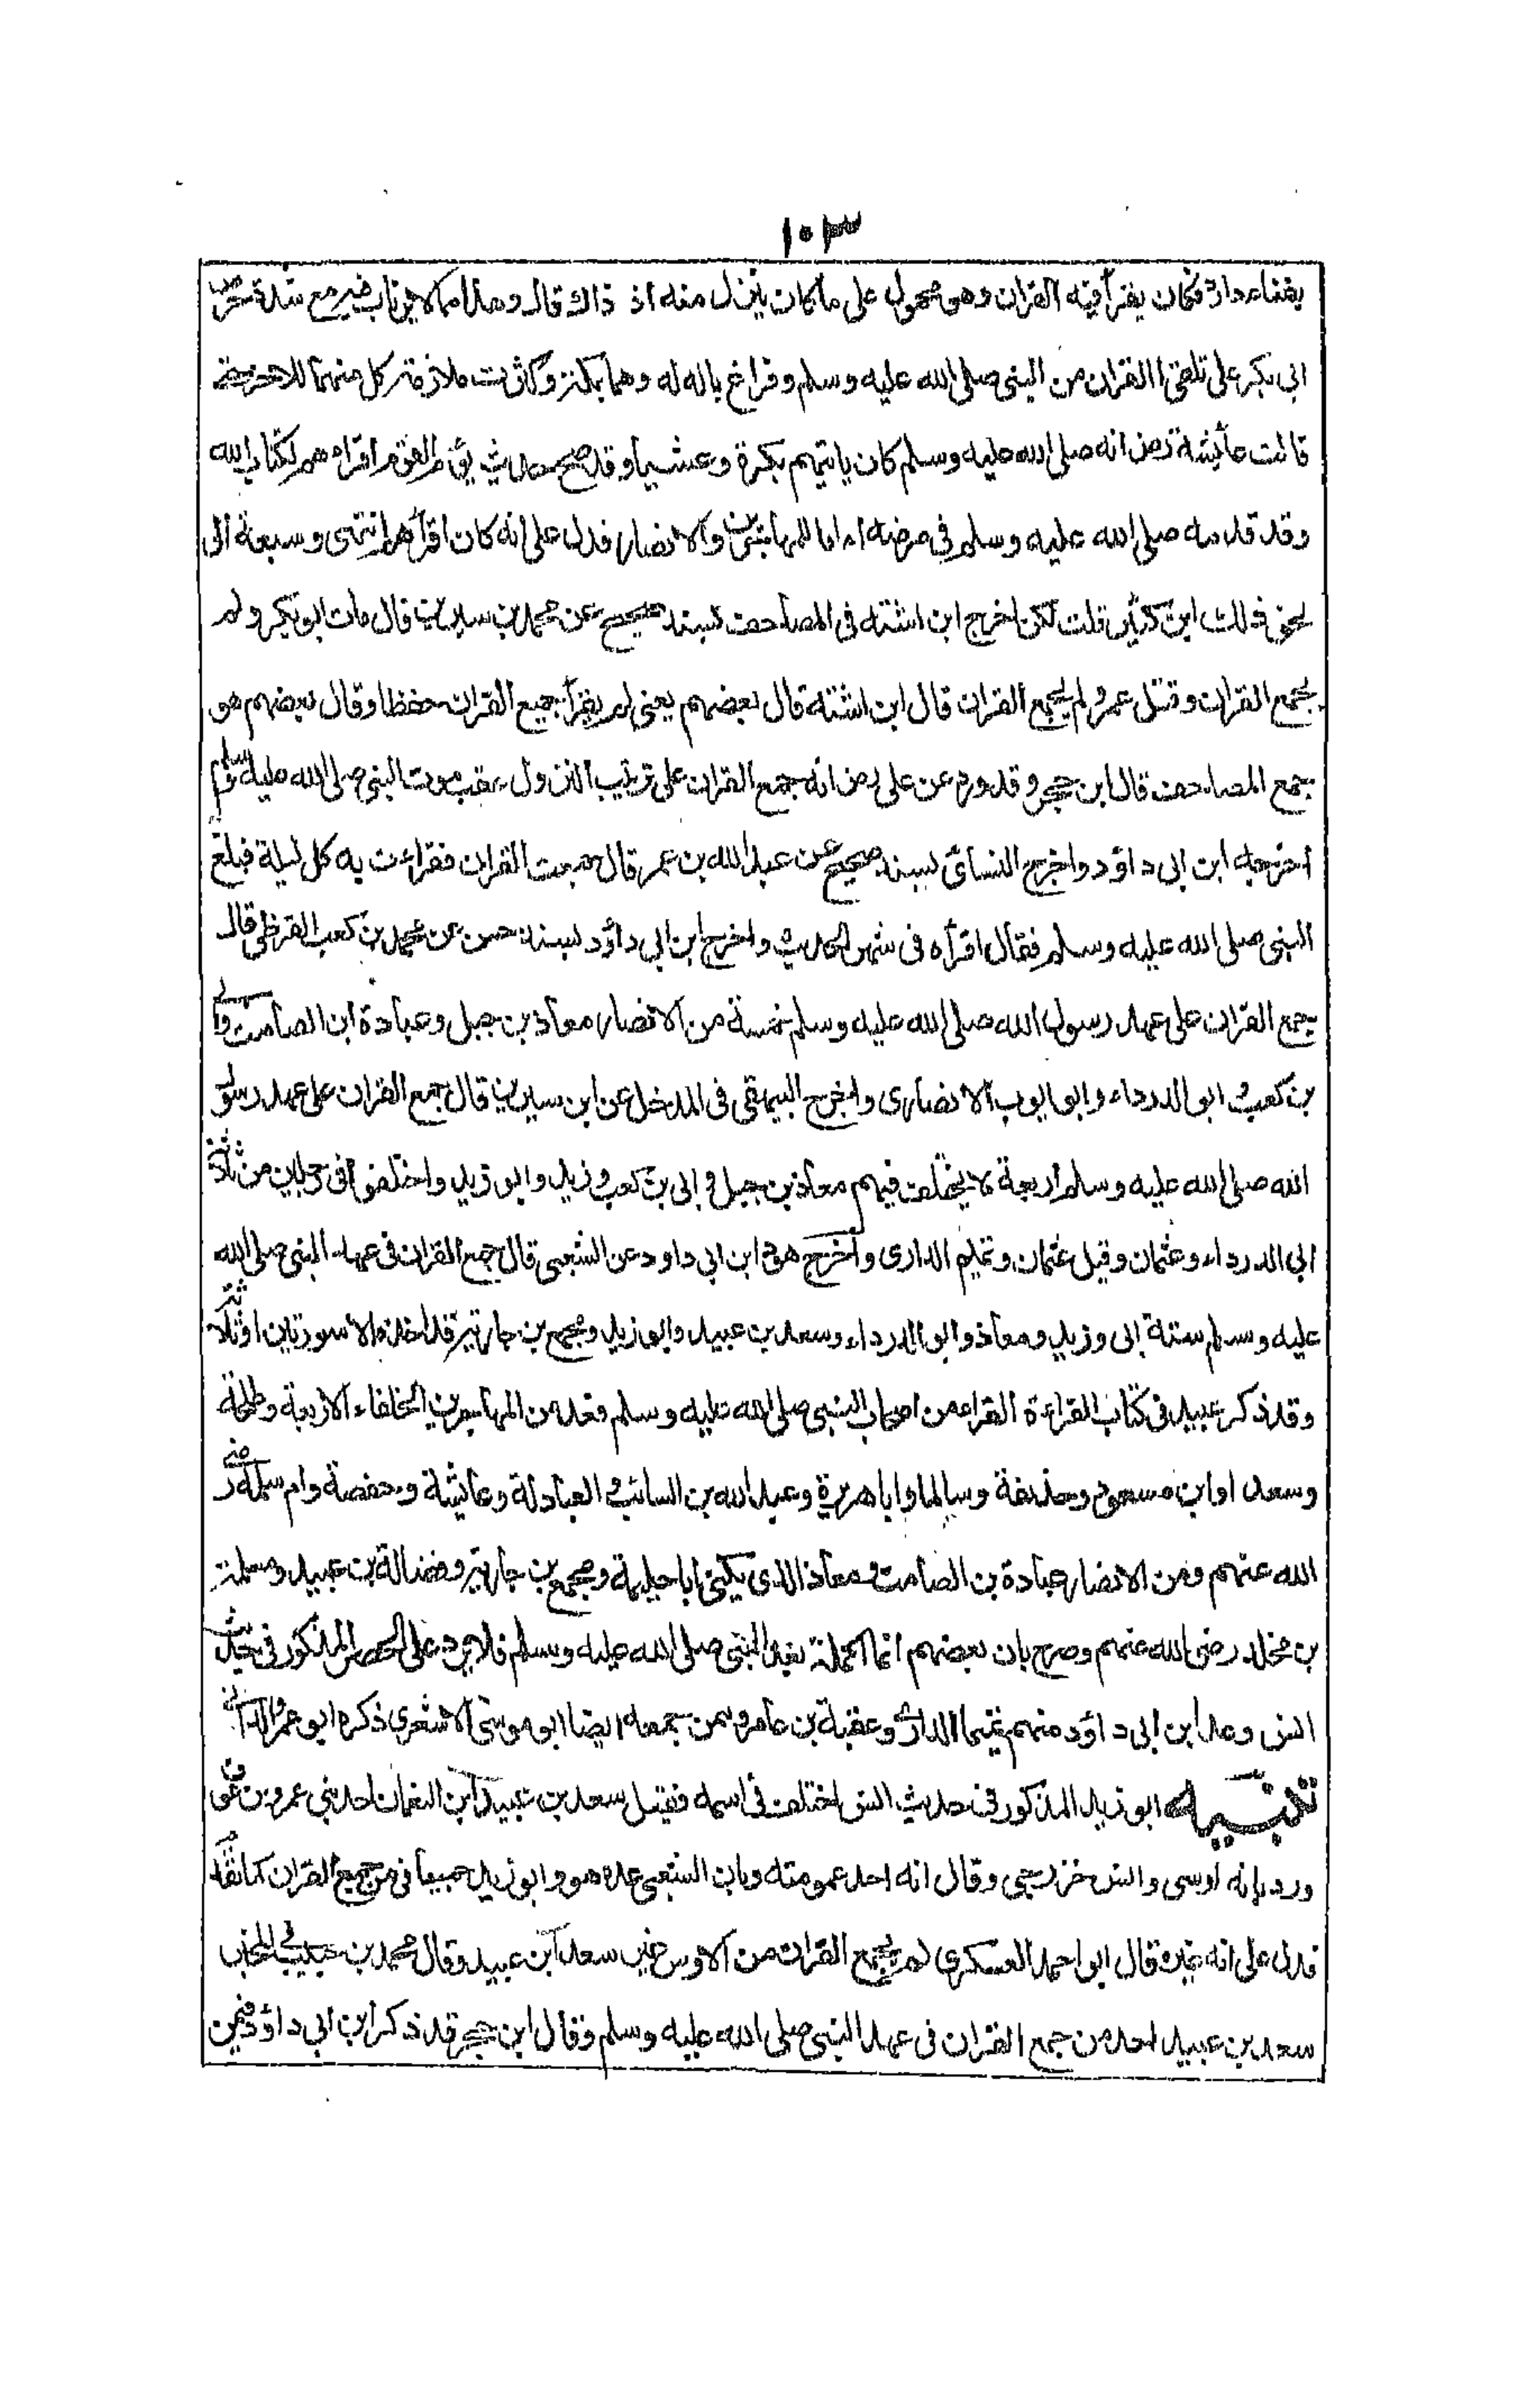 ١٠٣
بفناء داره فكان يقرأ فيه القران وهو محمول على ما كان ينزل منه اذ ذاك قال وهذا مما لا يرتاب فيه مع شدة حرص
ابى بكر على تلقى القران من النبى صلى الله عليه وسلم وفراغ باله له وهما بمكة وكثرت ملازمة كل منهما للاخر حتى
قالت عائشة رض انه صلى الله عليه وسلم كان ياتيهم بكرة وعشيا وقد صح حديث يؤم القوم اقراهم لكتاب الله
وقد قدمه صلى الله عليه وسلم فى مرضه اماما للمهاجرين والانصار فدل على انه كان اقرأهم انتهى وسبقه الى
نحو ذلك ابن كثير قلت لكن اخرج ابن اشته فى المصاحف بسند صحيح عن محمد بن سيرين قال مات ابو بكر ولم
يجمع القران وقتل عمر ولم يجمع القران قال ابن اشته قال بعضهم يعنى لم يقرأ جميع القران حفظا وقال بعضهم هو
جمع المصاحف قال ابن حجر وقد ورد عن على رض انه جمع القران على ترتيب النزول عقب موت النبى صلى الله عليه وسلم
اخرجه ابن ابى داؤد واخرج النسائى بسند صحيح عن عبد الله بن عمر قال جمعت القران فقراءت به كل ليلة فبلغ
النبى صلى الله عليه وسلم فقال اقرأه فى شهر الحديث واخرج ابن ابى داؤد بسند حسن عن محمد بن كعب القرظى قال
جمع القران على عهد رسول الله صلى الله عليه وسلم خمسة من الانصار معاذ بن جبل وعبادة ابن الصامت وابى
بن كعب و ابو الدرداء وابو ايوب الانصارى واخرج البيهقى فى المدخل عن ابن سيرين قال جمع القران على عهد رسول
الله صلى الله عليه وسلم اربعة لا يختلف فيهم معاذ بن جبل و ابى بن كعب وزيد وابو زيد واختلفوا فى رجلين من ثلاثة
ابى الدرداء وعثمان وقيل عثمان وتميم الدارى واخرج هو و ابن ابى داود عن الشعبى قال جمع القران فى عهد النبى صلى الله
عليه وسلم ستة ابى وزيد ومعاذ وابو الدرداء وسعد بن عبيد وابو زيد ومجمع بن جارية قد اخذه الا سورتين او ثلاثة
وقد ذكر عبيد فى كتاب القراءة القراء من اصحاب النبى صلى الله عليه وسلم فعد من المهاجرين الخلفاء الاربعة وطلحة
وسعدا وابن مسعود وحذيفة وسالما وابا هريرة وعبد الله بن السائب و العبادلة وعائشة وحفصة وام سلمة رضى
الله عنهم ومن الانصار عبادة بن الصامت ومعاذ الذى يكنى ابا حليمة ومجمع بن جارية وفضالة بن عبيد ومسلمة
بن مخلد رضى الله عنهم وصرح بان بعضهم انما كمله بعد النبى صلى الله عليه وسلم فلا يرد على الحصر المذكور فى حديث
انس وعد ابن ابى داؤد منهم تميما الدارى وعقبة بن عامر وممن جمعه ايضا ابو موسى الاشعرى ذكره ابو عمرو الدانى
تنبيه ابو زيد المذكور فى حديث انس اختلف فى اسمه فقيل سعد بن عبيد ابن النعمان احد بنى عمرو بن عوف
ورد بانه اوسى وانس خزرجى وقال انه احد عمومته وبان الشعبى عده هو وابو زيد جميعا فى من جمع القران كما تقدم
فدل على انه غيره وقال ابو احمد العسكرى لم يجمع القران من الاوس غير سعد ابن عبيد وقال محمد بن حبيب فى المحبر
سعد بن عبيد احد من جمع القران فى عهد النبى صلى الله عليه وسلم وقال ابن حجر قد ذكر ابن ابى داؤد فيمن